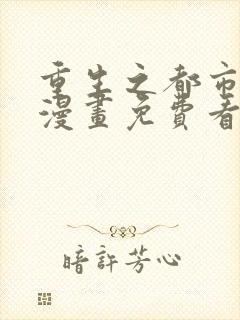 重生之都市
漫畫免費看
暗許芳心